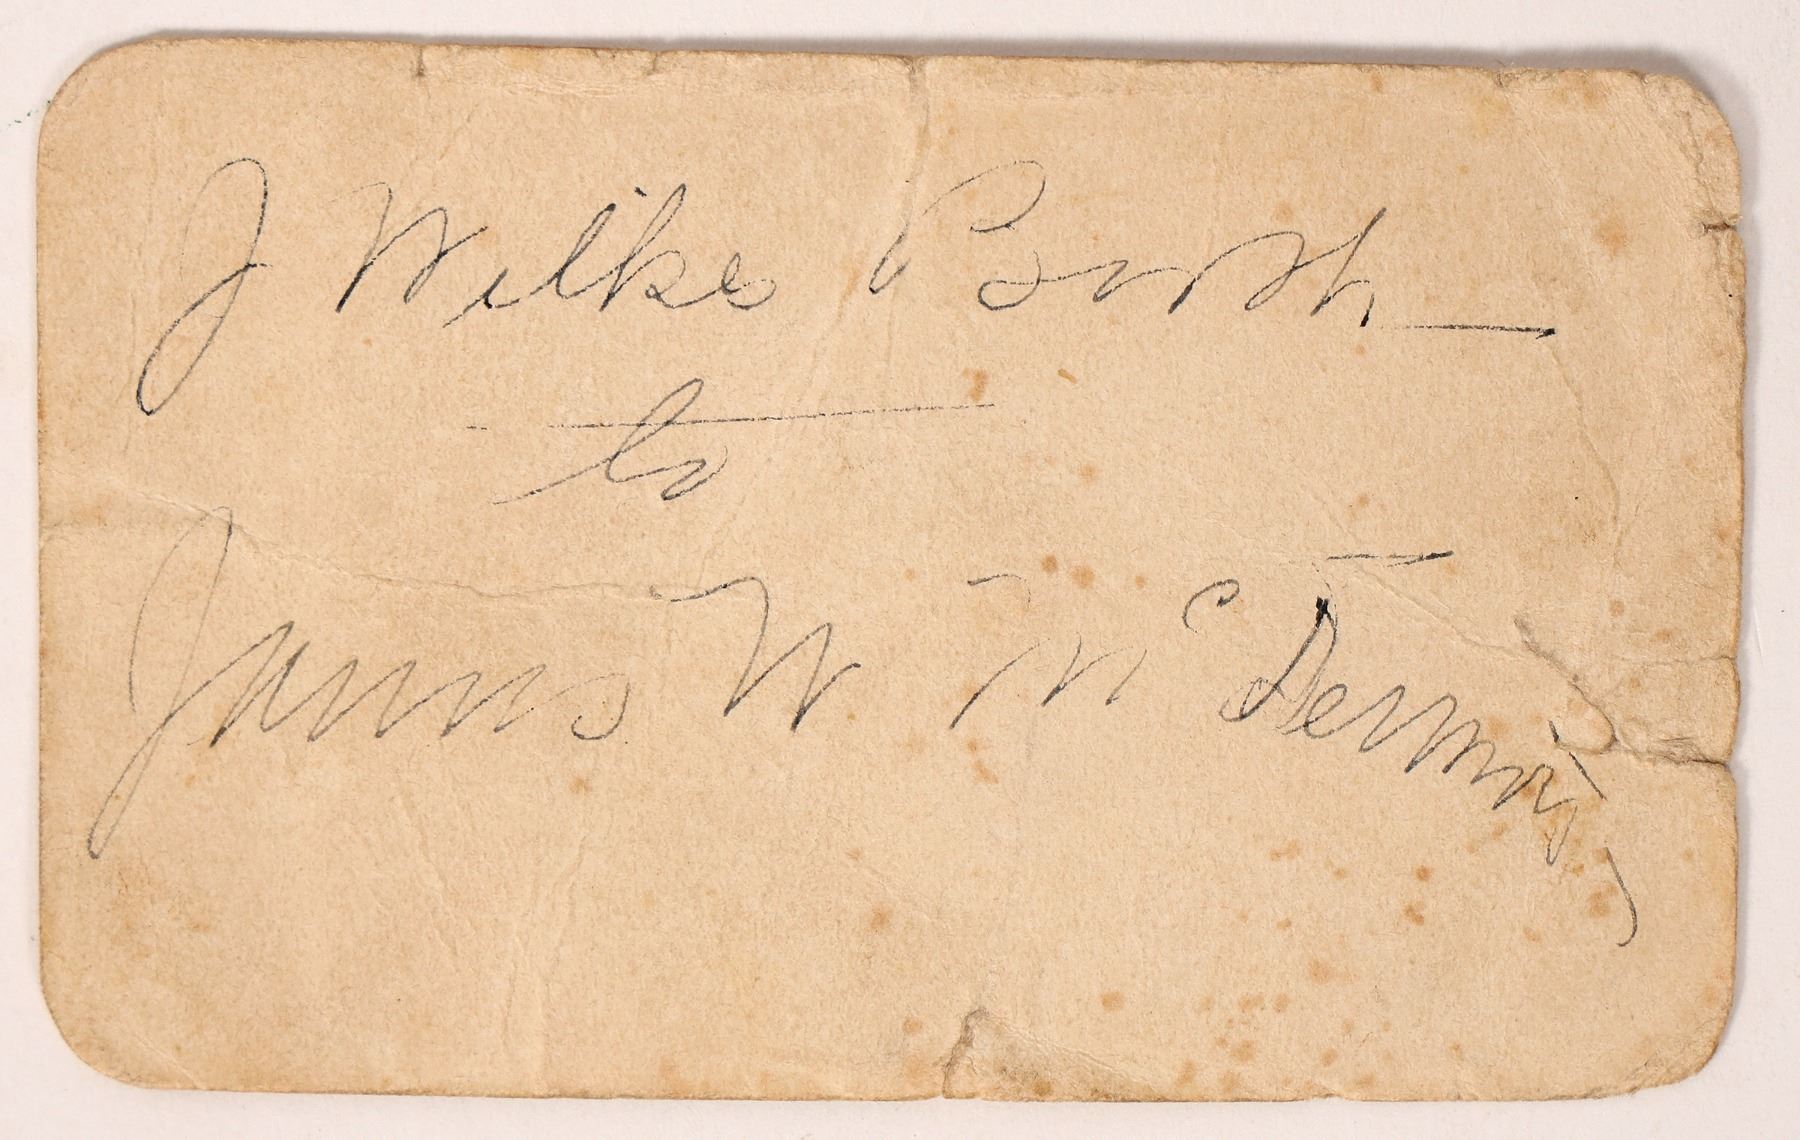 J Wilkes Booth
to
James W McDermott